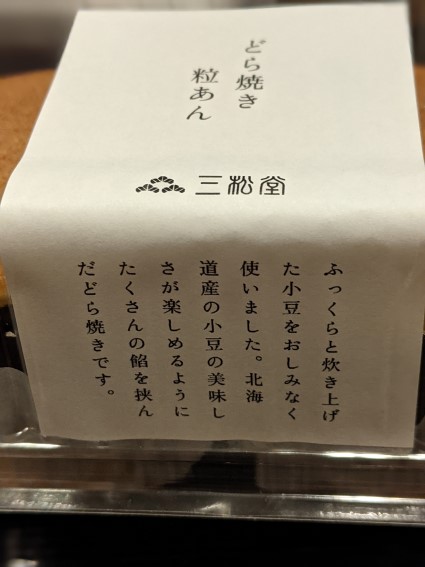 どら焼き
粒あん
三松堂
ふっくらと炊き上げ
た小豆をおしみなく
使いました。北海
道産の小豆の美味し
さが楽しめるように
たくさんの餡を挟ん
だどら焼きです。